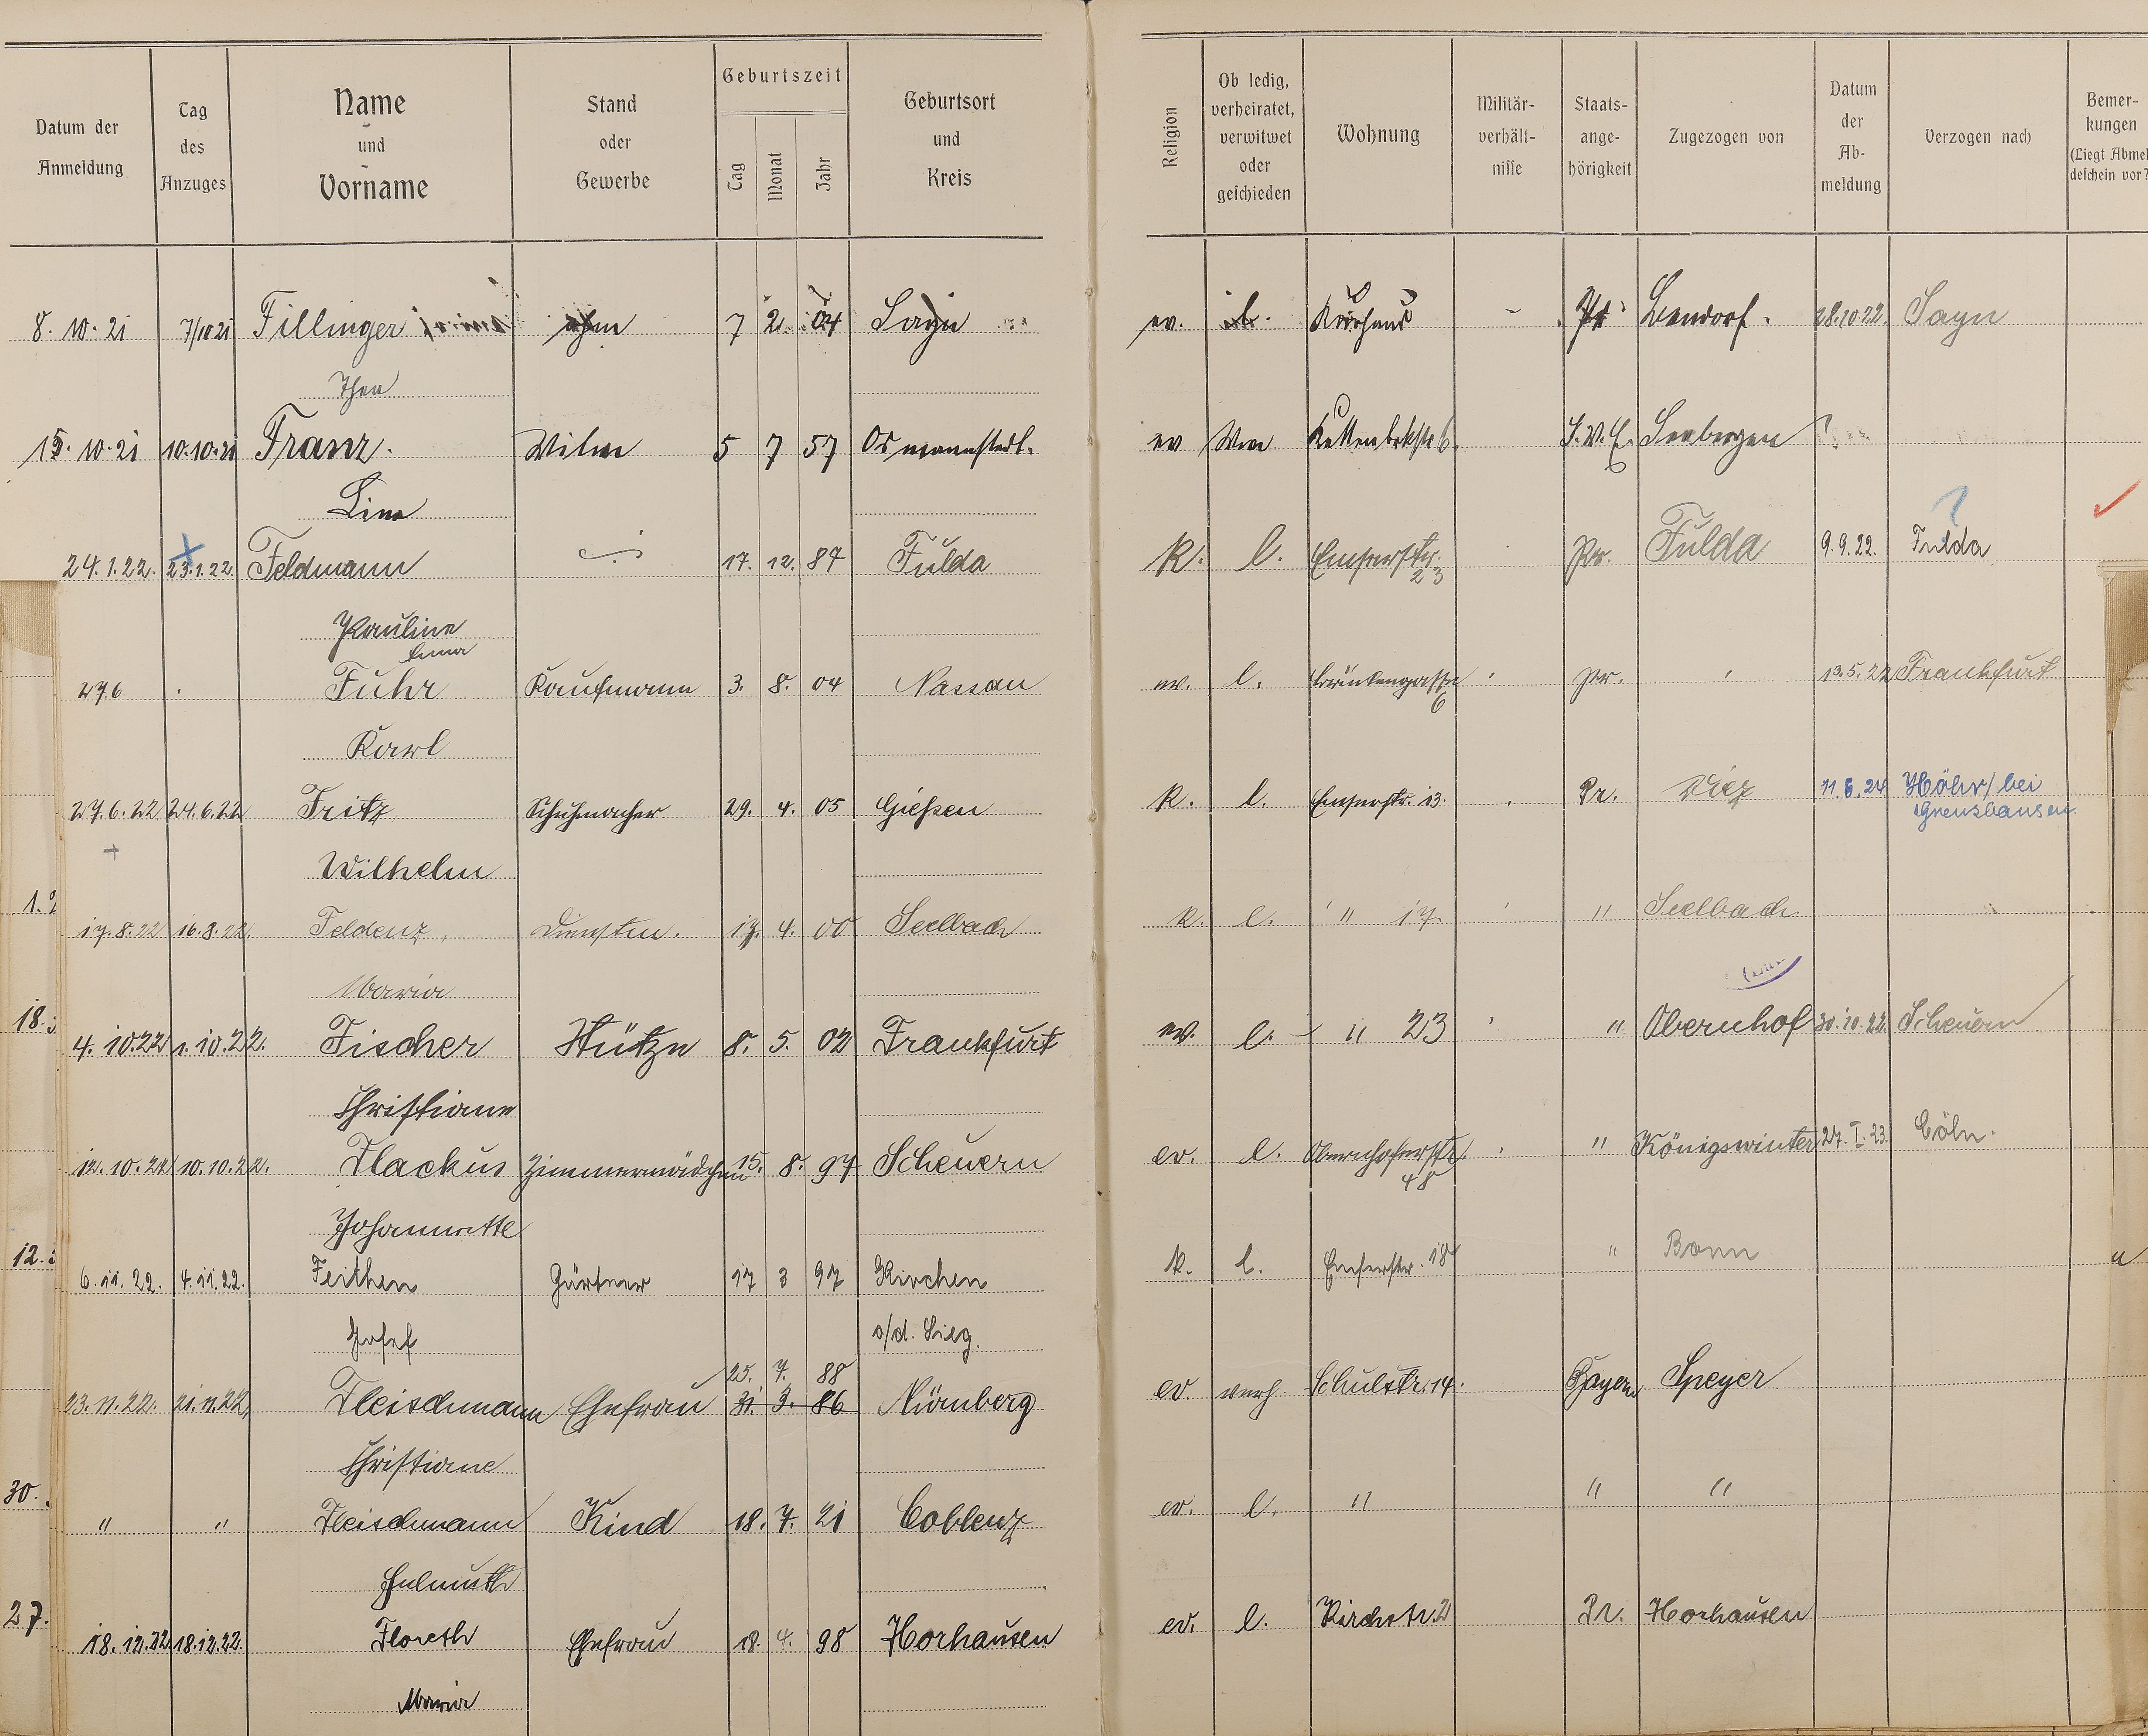 Datum der Anmeldung | Tag des Anzuges | Name und Vorname | Stand oder Gewerbe | Geburtszeit Tag Monat Jahr | Geburtsort und Kreis | Religion | Ob ledig, verheiratet, verwitwet oder geschieden | Wohnung | Militär-verhält-nisse | Staats-ange-hörigkeit | Zugezogen von | Datum der Ab-meldung | Verzogen nach | Bemer-kungen (Liegt Abmel deschein vor?
8. 10. 21 7/10 21 Fillinger 7 2. 04 Sayn ev. l. Kurhaus - Pr Bendorf. 28.10.22. Sayn
Thea
15. 10. 21 10.10.21 Franz. Witwe 5 7 57 Osmannstedt. ev Wwe Kettenbrückstr 6. S.W.E. Seebergen ?
Lina
24.1.22. 23.1.22 Feldmann 17. 12. 87 Fulda K. l. Emserstr. 23 Pr. Fulda 9.9.22. Fulda ?
Pauline
27.6 Fuhr Kaufmann 3. 8. 04 Nassau ev. l. Brückengasse 6 pr. 13.5.22 Frankfurt
Karl
27.6.22 24.6.22 Fritz Schuhmacher 29. 4. 05 Gießen K. l. Emserstr. 13. Pr. Diez 11.6.24 Höhr/bei Grenzhausen
Wilhelm
17.8.22 16.8.22 Feldenz, Dienstm. 17. 4. 00 Seelbach K. l. " 17. " Seelbach.
Maria
4. 10.22 1.10.22. Fischer Stütze 8. 5. 02 Frankfurt ev. l. " 23 " Obernhof 30.10.22. Scheuern
Christiane
12.10.22 10.10.22. Flackus Zimmermädchen 15. 8. 97 Scheuern ev. l. Obernhoferstr. 48 " Königswinter 27.I.23. Cöln.
Johannette
6.11.22. 4.11.22. Feithen Gärtner 17 3 97 Kirchen K. l. Emserstr. 18 " Bonn
Josef a/d. Sieg.
25. 7. 88
23.11.22. 21.11.22. Fleischmann Ehefrau 31. 3. 86 Nürnberg ev. verh Schulstr. 14. Bayern Speyer
Christiane
" " Fleischmann Kind 18. 7. 21 Coblenz ev. l. " " "
Helmuth
18.12.22 18.12.22. Floreth Ehefrau 18. 4. 98 Horhausen ev. l. Kirchstr. 2 Pr. Horhausen
Maria
18.
12.
30.
27.